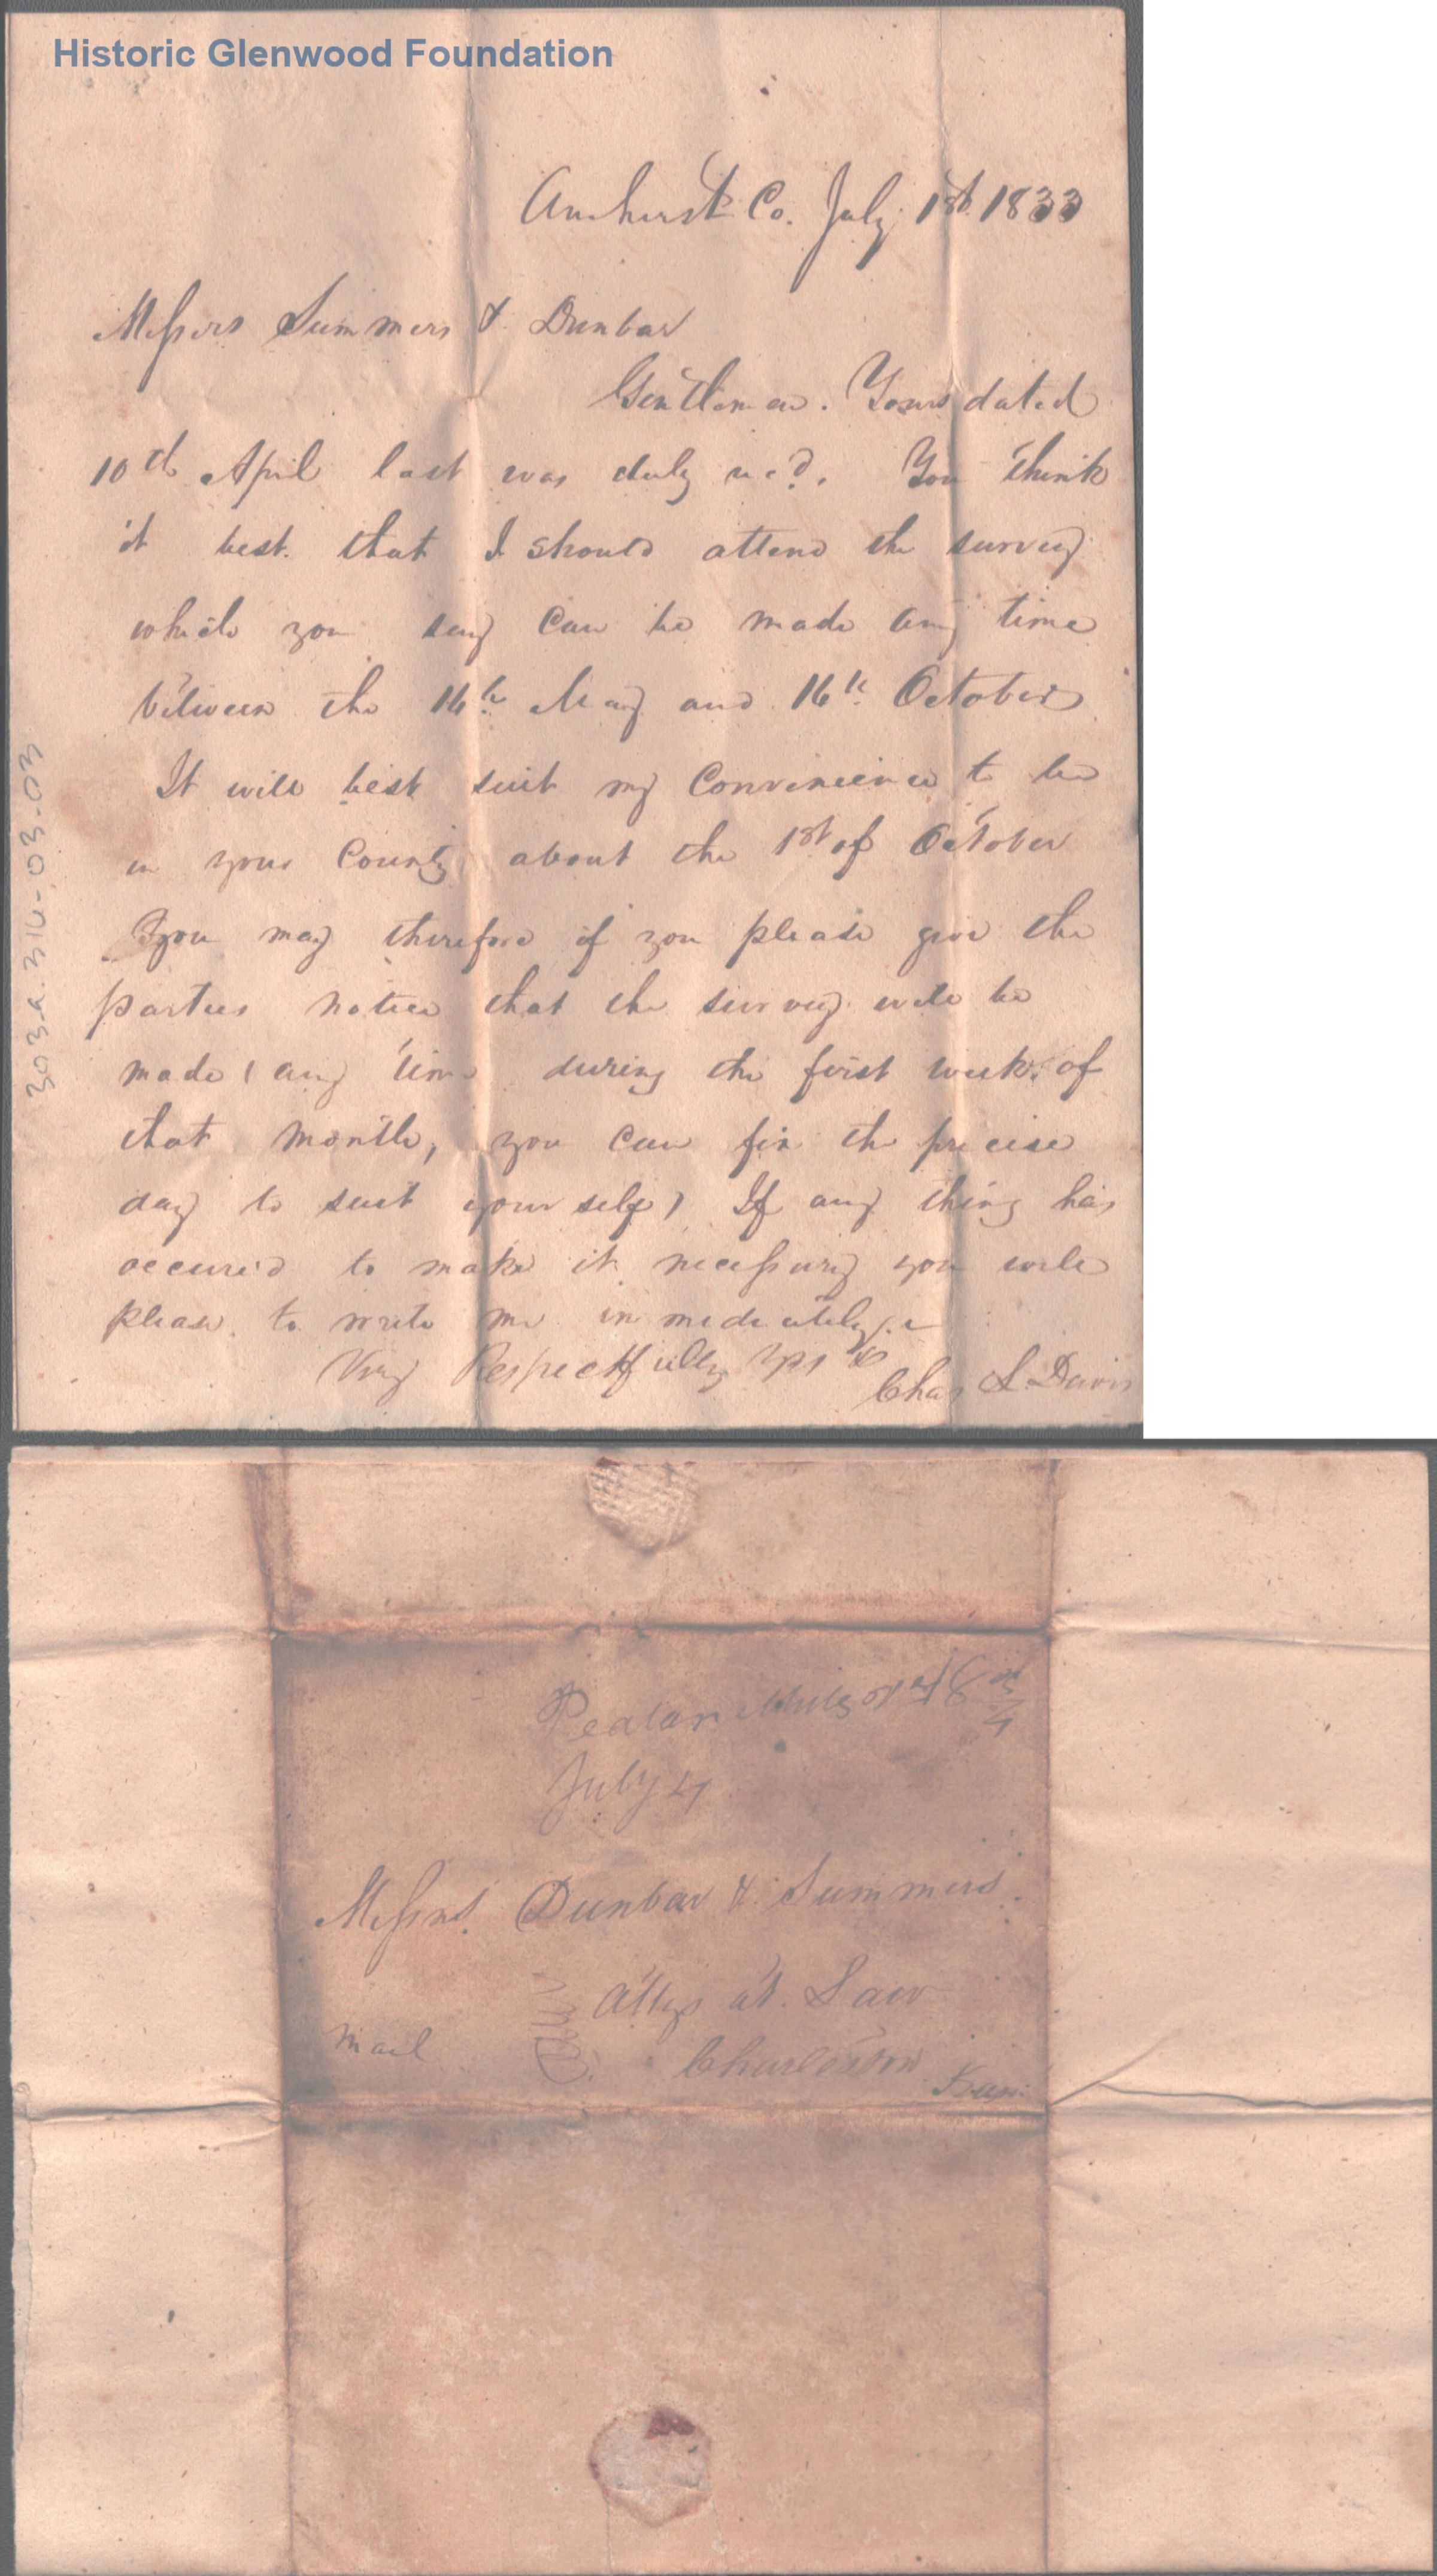 Historic Glenwood Foundation
Amherst Co. July 1st 1833
Messers Summers & Dunbar
Gentlemen. Yours dated
10th April last was duly recd. You think
it best that I should attend the survey
which you say can be made any time
between the 16th May and 16th October
It will best suit my Convenience to be
in your County about the 1st of October
You may therefore if you please give the
parties notice that the survey will be
made (any time during the first week of
that month, you can fix the precise
day to suit yourself) If any thing has
occured to make it necessary you will
please to write me immediately.
Very Respectfully yrs &c
Chas L. Davis
303a.314-03-03
Pedlar Mills 18 3/4
July 4
Messrs. Dunbar & Summers.
Attys at Law
Mail
Charleston
Kan.